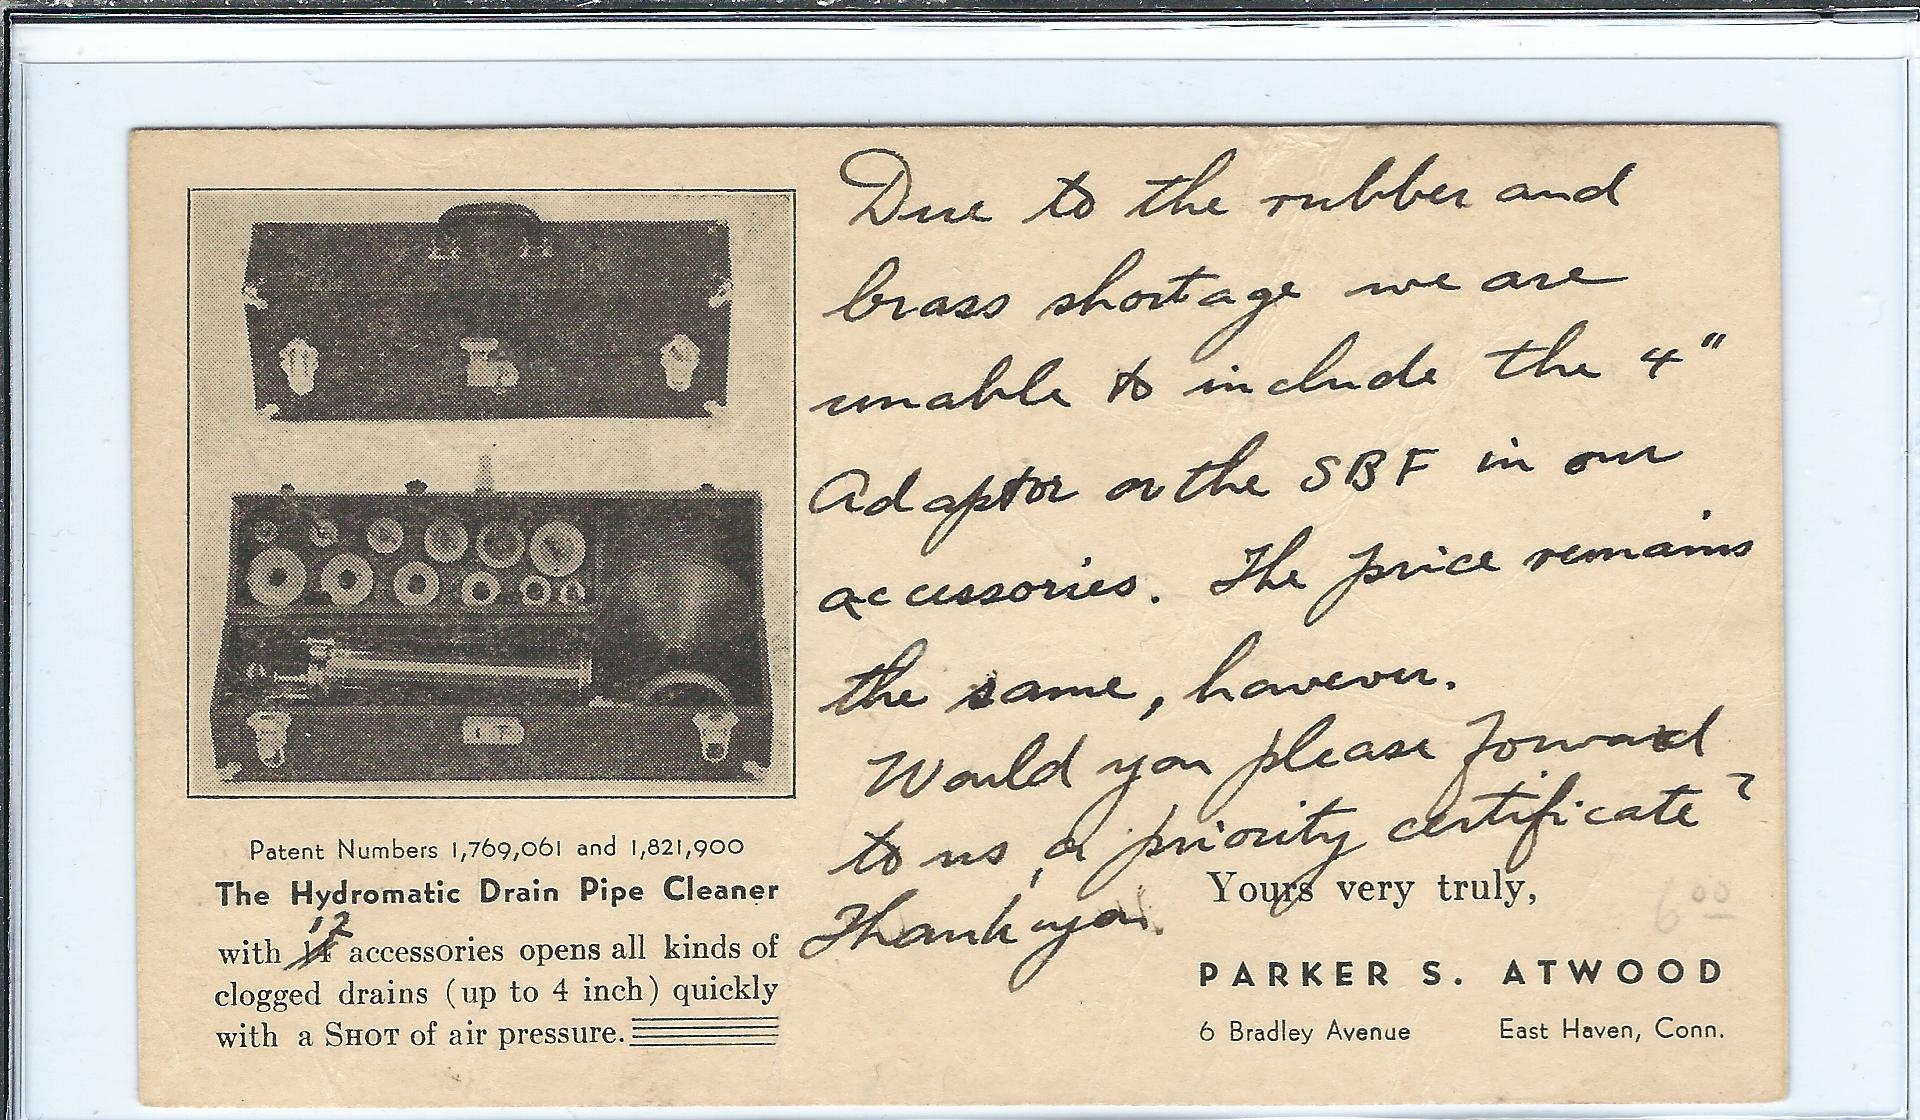 Due to the rubber and
brass shortage we are
unable to include the 4"
Adaptor or the SBF in our
accessories. The price remains
the same, however.
Would you please forward
to us, a priority certificate?
Thank you.
Patent Numbers 1,769,061 and 1,821,900
The Hydromatic Drain Pipe Cleaner
12
with 14 accessories opens all kinds of
clogged drains (up to 4 inch) quickly
with a SHOT of air pressure.
Yours very truly,
6 00
PARKER S. ATWOOD
6 Bradley Avenue East Haven, Conn.